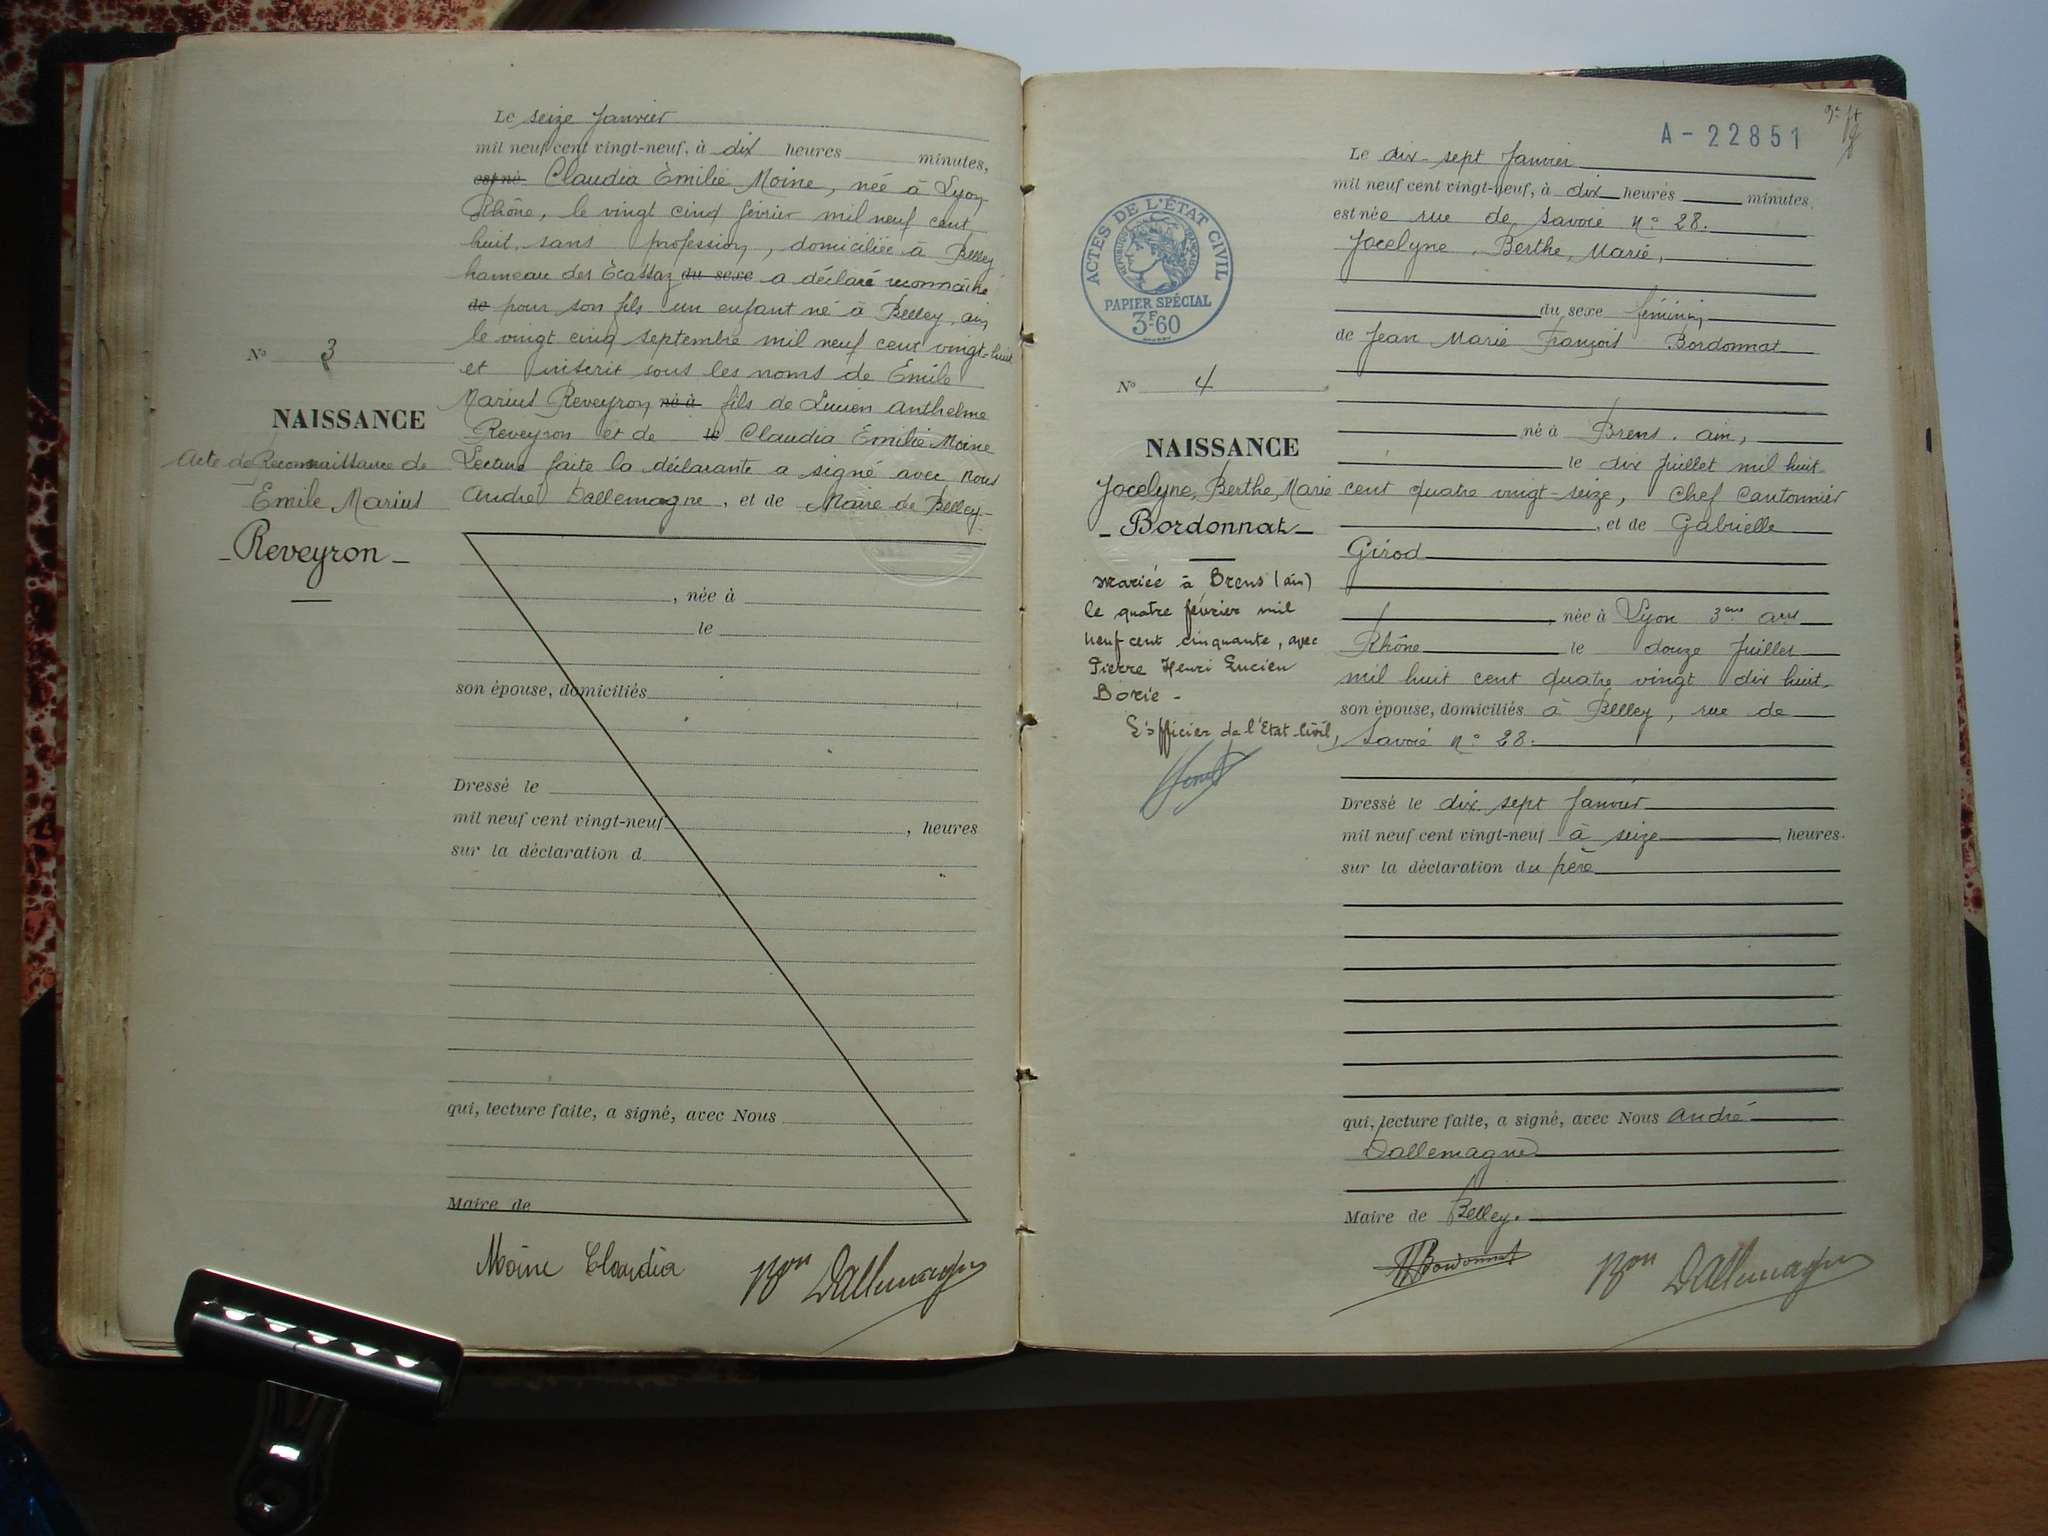 Le seize Janvier
mil neuf cent vingt-neuf, à dix heures minutes,
est né Claudia Emilie Moine, née à Lyon
Rhône, le vingt cinq février mil neuf cent
huit, sans profession, domiciliée à Belley
hameau des Ecassaz du sexe a déclaré reconnaitre
de pour son fils un enfant né à Belley, ain,
le vingt cinq septembre mil neuf cent vingt-huit
et inscrit sous les noms de Emile
Marius Reveyron né à fils de Lucien Anthelme
Reveyron et de le Claudia Emilie Moine
Lecture faite la déclarante a signé avec nous
André Dallemagne, et de Maire de Belley-
N° 3
NAISSANCE
Acte de Reconnaissance de
Emile Marius
- Reveyron -
, née à
le
son épouse, domiciliés
Dressé le
mil neuf cent vingt-neuf , heures
sur la déclaration d
qui, lecture faite, a signé, avec Nous
Maire de
Moine Claudia Bon Dallemagne
A - 22851
ACTES DE L'ÉTAT CIVIL
RÉPUBLIQUE FRANÇAISE
PAPIER SPÉCIAL
3F60
N° 4
NAISSANCE
Jocelyne, Berthe, Marie
- Bordonnat -
mariée à Brens (ain)
le quatre février mil
neuf cent cinquante, avec
Pierre Henri Lucien
Borie -
L'officier de l'Etat-Civil,
Le dix-sept Janvier
mil neuf cent vingt-neuf, à dix heures minutes,
est née rue de Savoie n° 28.
Jocelyne, Berthe, Marie,
du sexe féminin,
de Jean Marie François Bordonnat
né à Brens, ain,
le dix Juillet mil huit
cent quatre vingt-seize, Chef Cantonnier
, et de Gabrielle
Girod
, née à Lyon 3eme arrt
Rhône le douze Juillet
mil huit cent quatre vingt dix huit
son épouse, domiciliés à Belley, rue de
Savoie n° 28.
Dressé le dix sept Janvier
mil neuf cent vingt-neuf à seize heures.
sur la déclaration du père
qui, lecture faite, a signé, avec Nous André
Dallemagne
Maire de Belley.
Bordonnat Bon Dallemagne